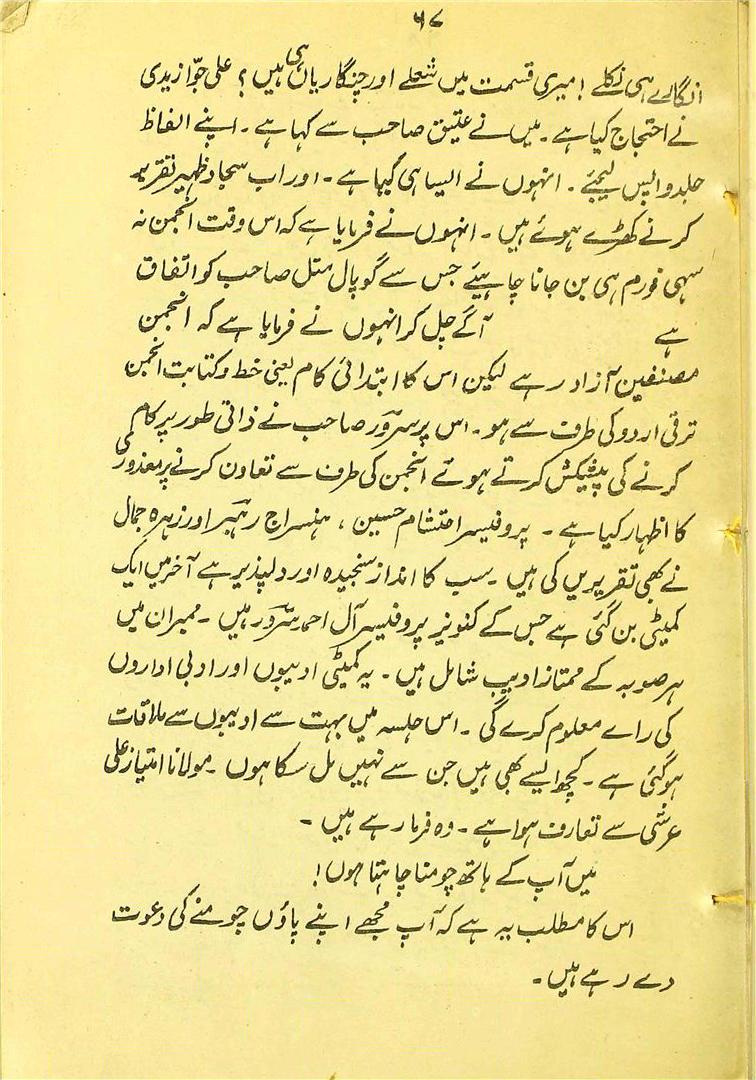 ۵۷
انگارے ہی نکلے! میری قسمت میں شعلے اور چنگاریاں ہی ہیں؟ علی جوّاد زیدی
نے احتجاج کیا ہے۔ میں نے عتیق صاحب سے کہا ہے۔ اپنے الفاظ
جلد واپس لیجئے۔ انہوں نے ایسا ہی کیا ہے۔ اور اب سجاد ظہیر تقریر
کرنے کھڑے ہوئے ہیں۔ انہوں نے فرمایا ہے کہ اس وقت انجمن نہ
سہی فورم ہی بن جانا چاہیئے جس سے گوپال متل صاحب کو اتفاق
ہے آگے چل کر انہوں نے فرمایا ہے کہ انجمن
مصنفین آزاد رہے لیکن اس کا ابتدائی کام یعنی خط و کتابت انجمن
ترقی اردو کی طرف سے ہو۔ اس پر سرور صاحب نے ذاتی طور پر کام
کرنے کی پیشکش کرتے ہوئے انجمن کی طرف سے تعاون کرنے پر معذوری
کا اظہار کیا ہے۔ پروفیسر احتشام حسین، ہنسراج رہبر اور زہرہ جمال
نے بھی تقریریں کی ہیں۔ سب کا انداز سنجیدہ اور دلپذیر ہے آخر میں ایک
کمیٹی بن گئی ہے جس کے کنوینر پروفیسر آل احمد سرور ہیں۔ ممبران میں
ہر صوبہ کے ممتاز ادیب شامل ہیں۔ یہ کمیٹی ادیبوں اور ادبی اداروں
کی رائے معلوم کرے گی۔ اس جلسہ میں بہت سے ادیبوں سے ملاقات
ہو گئی ہے۔ کچھ ایسے بھی ہیں جن سے نہیں مل سکا ہوں۔ مولانا امتیاز علی
عرشی سے تعارف ہوا ہے۔ وہ فرما رہے ہیں۔
میں آپ کے ہاتھ چومنا چاہتا ہوں!
اس کا مطلب یہ ہے کہ آپ مجھے اپنے پاؤں چومنے کی دعوت
دے رہے ہیں۔